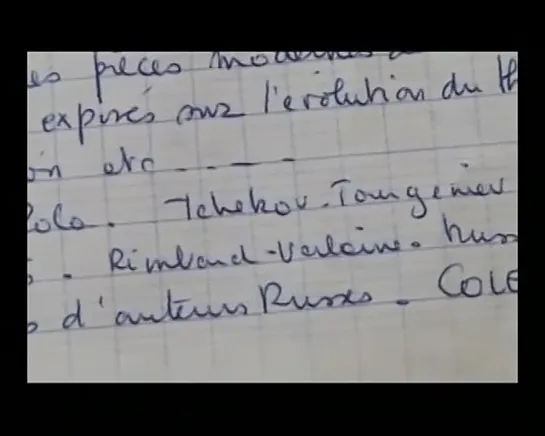 es pièces modernes
exposés sur l'évolution du th
on etc -----
Tchekov. Tourgeniev
. Rimbaud-Verlaine.
d'auteurs Russes. Cole